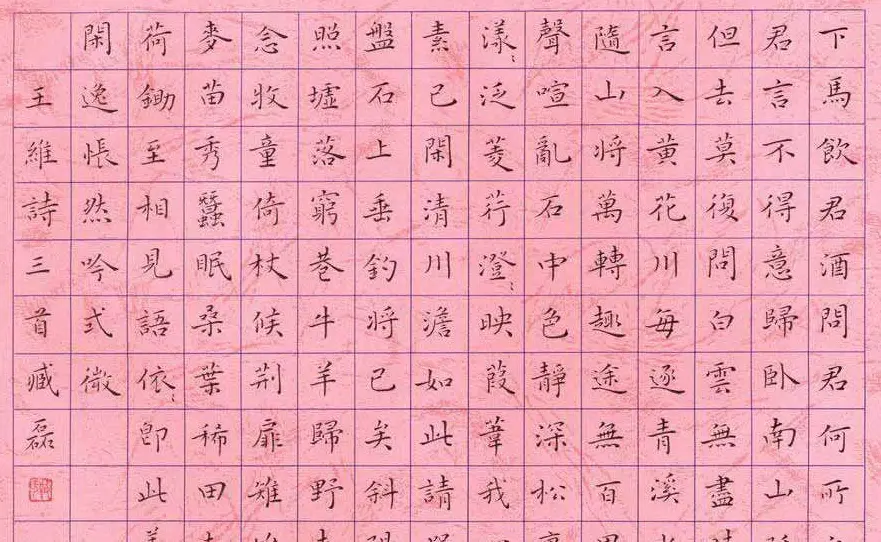 下馬飲君酒問君何所
君言不得意歸臥南山
但去莫復問白雲無盡
言入黃花川每逐青溪
隨山將萬轉趣途無百
聲喧亂石中色靜深松
漾〻泛菱荇澄〻映葭葦我
素已閑清川澹如此請
盤石上垂釣將已矣斜
照墟落窮巷牛羊歸野
念牧童倚杖候荆扉雉
麥苗秀蠶眠桑葉稀田
荷鋤至相見語依〻即此
閑逸悵然吟式微
王維詩三首臧磊